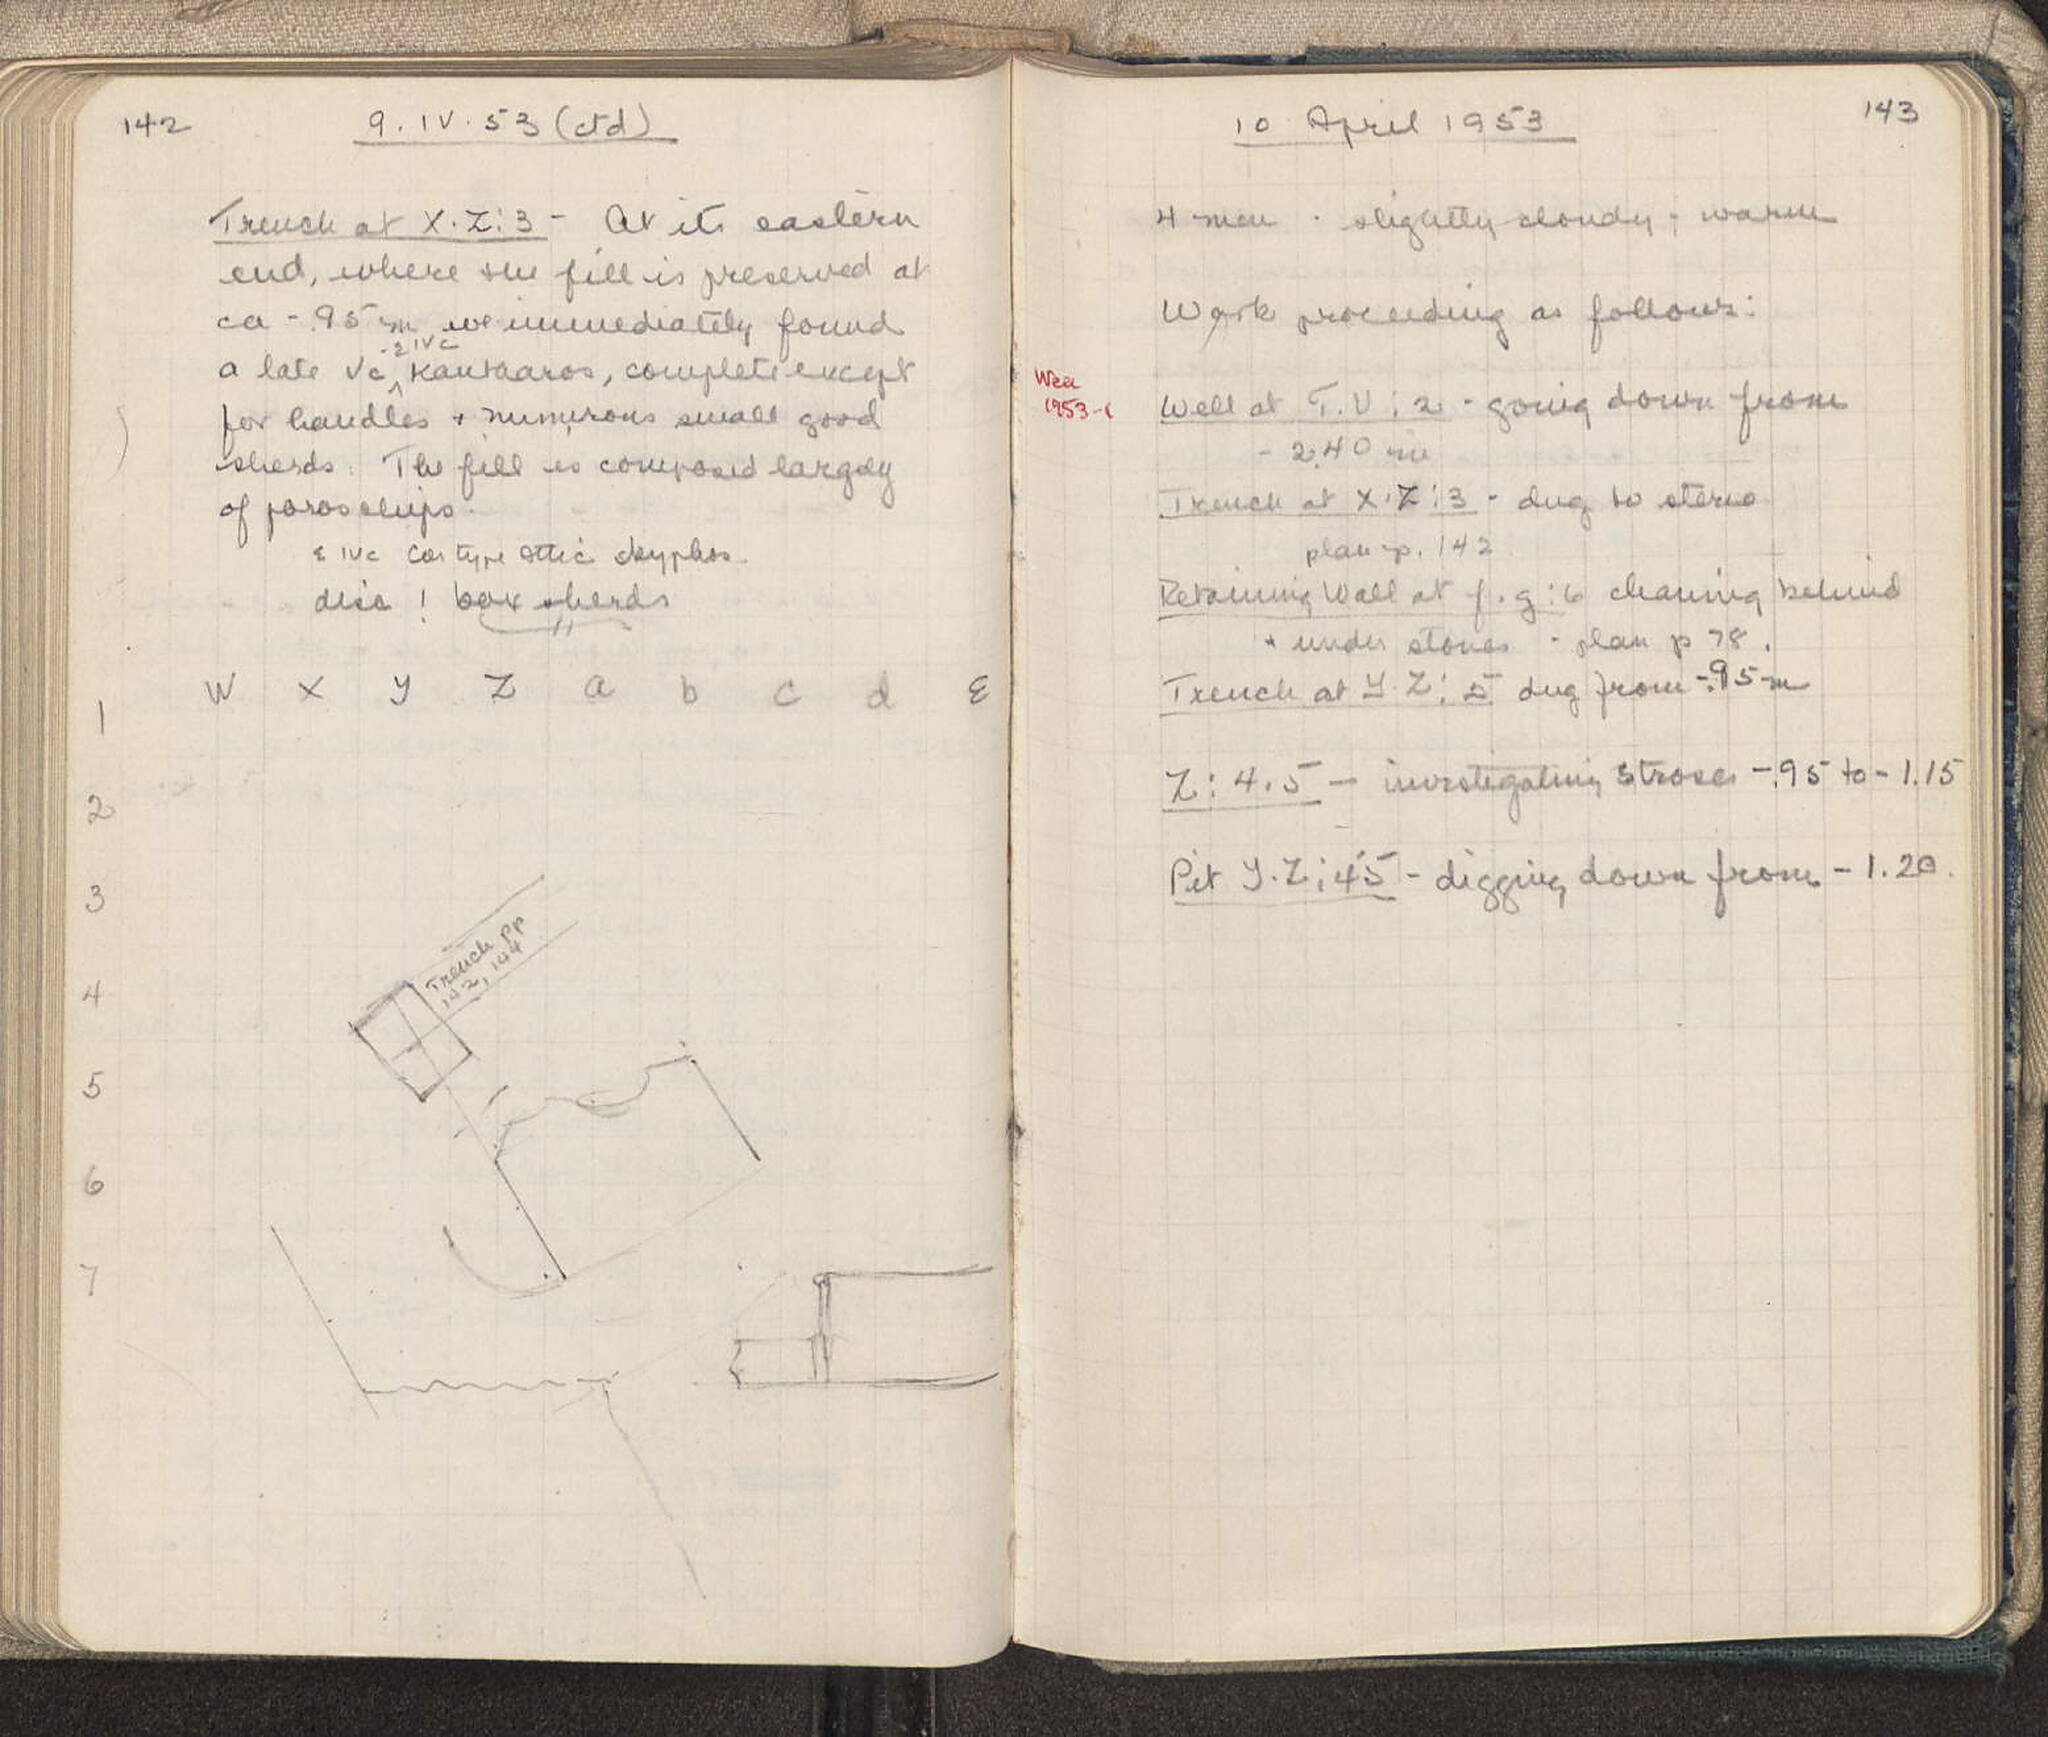 142
9.IV.53 (ctd)
Trench at X.Z:3 - At its eastern
end, where the fill is preserved at
ca -.95 m we immediately found
a late Vc - e IVc kantharos, complete except
for handles + numerous small good
sherds. The fill is composed largely
of poros chips.
e IVc Cor type Attic skyphos
disc! box sherds
W X Y Z a b c d E
1
2
3
4
5
6
7
Trench pp
142, 144
143
10 April 1953
4 men · slightly cloudy; warm
Work proceeding as follows:
Well
1953-1
Well at T.U:2 - going down from
- 2.40 m
Trench at X.Z:3 - dug to stereo
plan p. 142
Retaining Wall at f.g:6 cleaning behind
+ under stones - plan p 78.
Trench at Y Z: 5 dug from -.95 m
Z: 4.5 - investigating stroses -.95 to - 1.15
Pit Y.Z:4.5 - digging down from - 1.20.